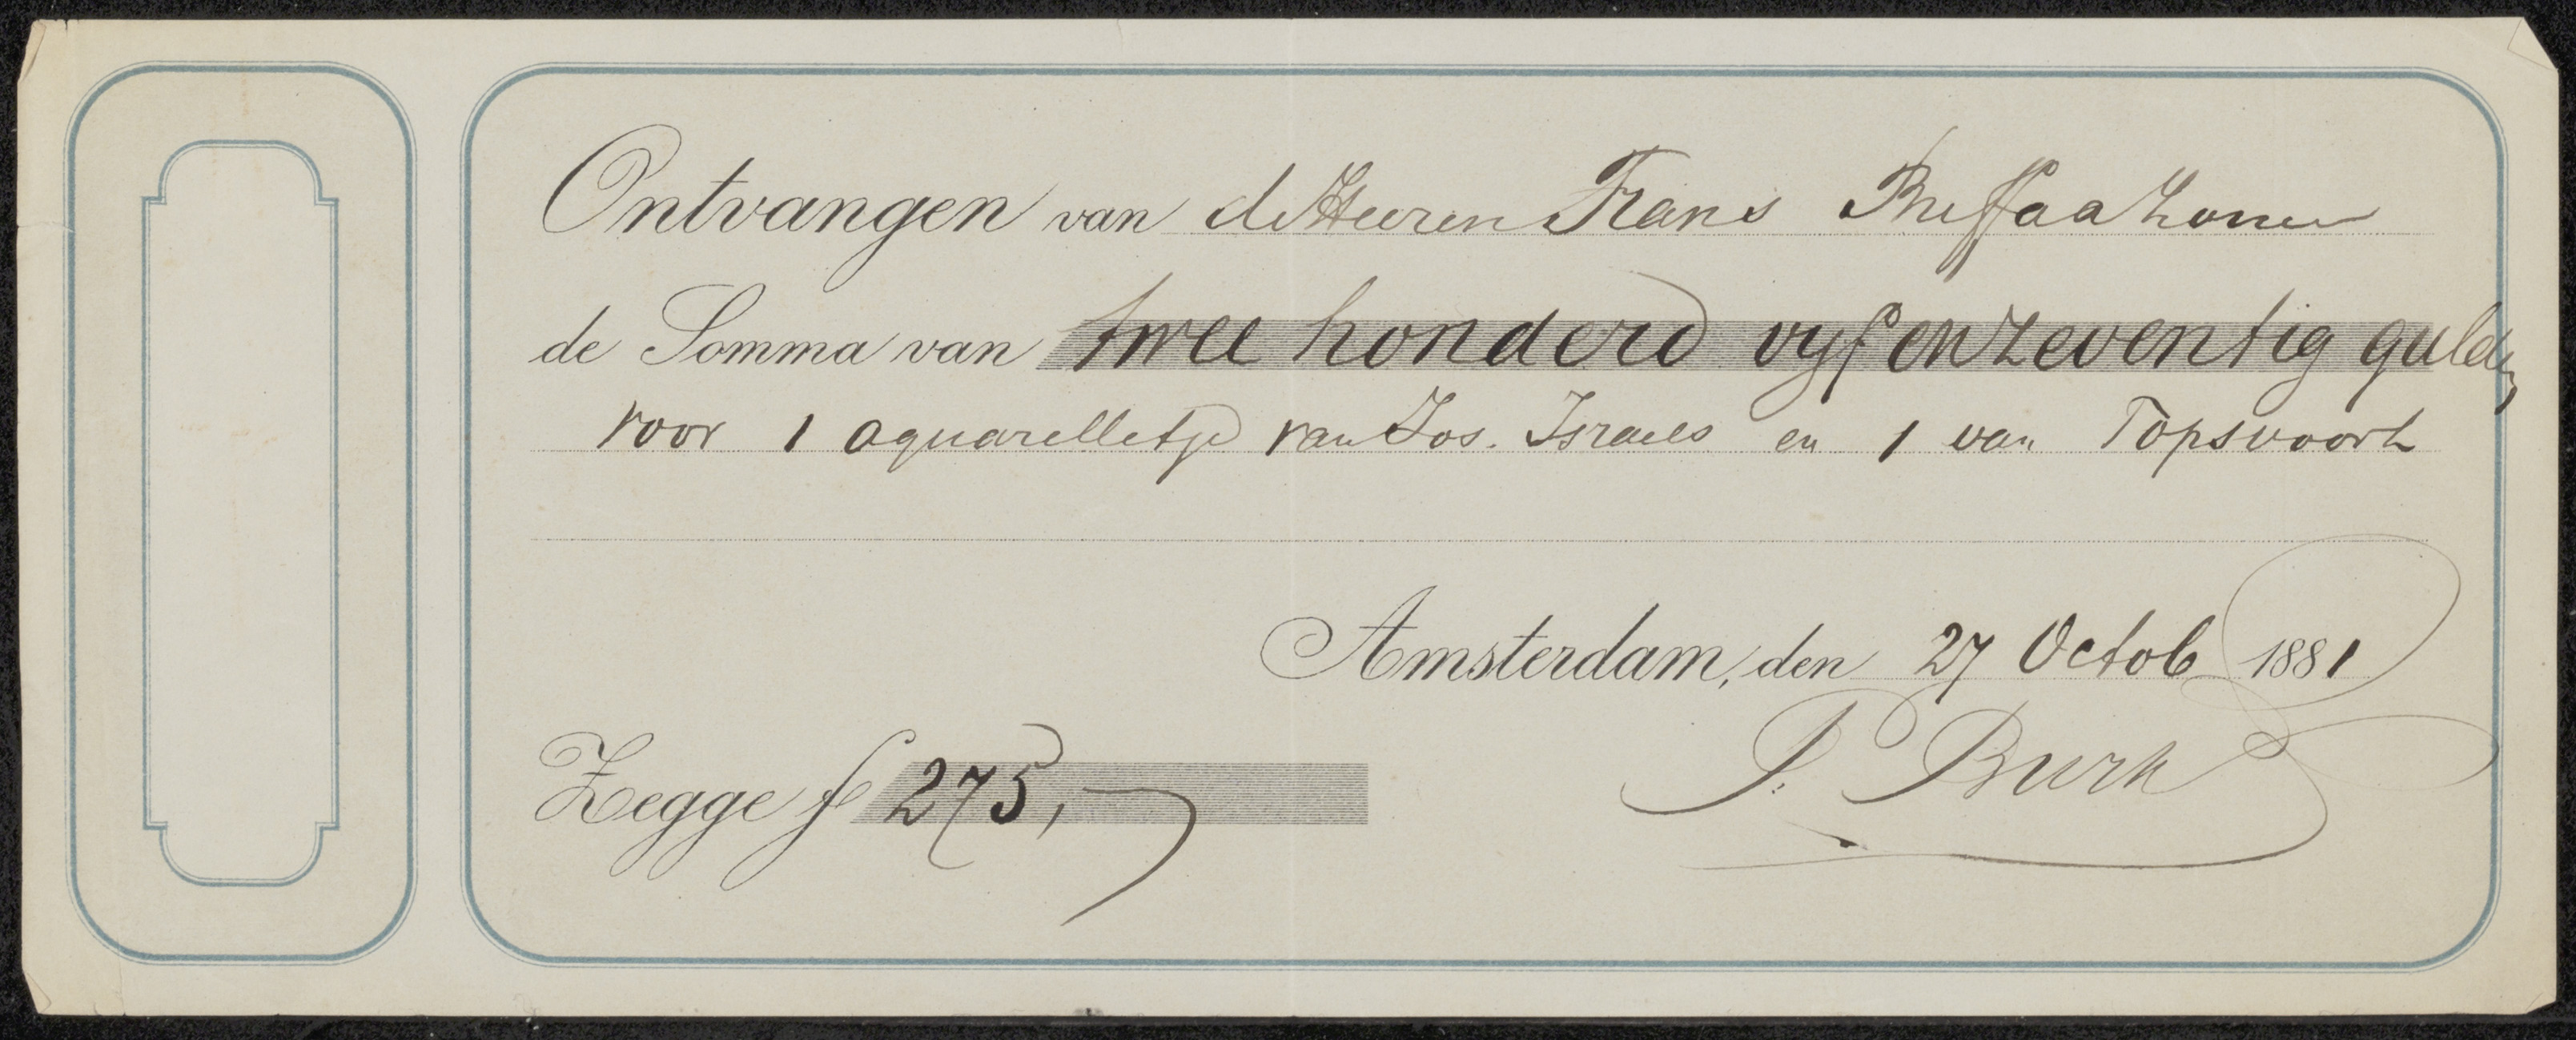 Ontvangen van de Heeren Frans Buffa a Zonen
de Somma van twee honderd vyf en zeventig gulden
voor 1 aquarelletje van Jos. Israels en 1 van Topsvoort
Amsterdam, den 27 Octob 1881
Zegge f 275,-
P. Burk